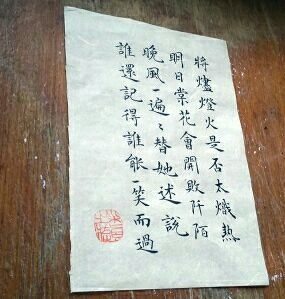 將爐燈火是否太熾熱
明日棠花會開敗阡陌
晚風一遍々替她述說
誰還記得誰能一笑而過